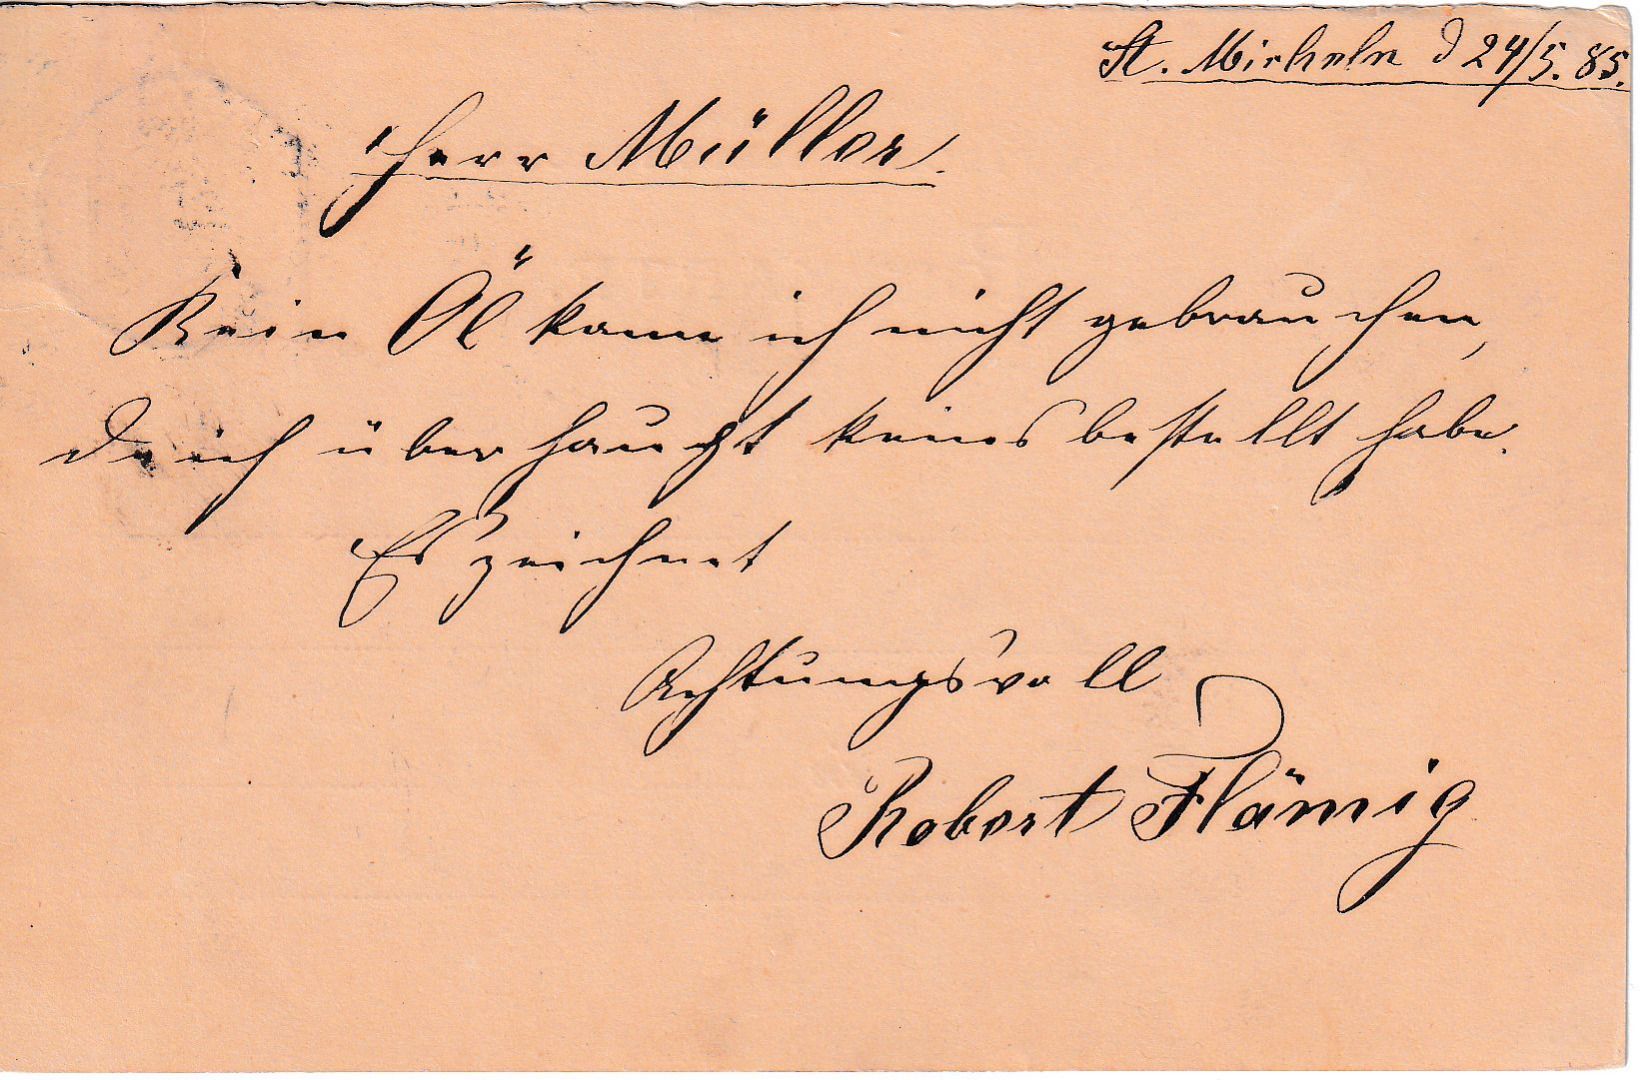 St. Micheln d 24/5. 85.
Herr Müller.
Kein Öl kann ich nicht gebrauchen,
da ich überhaupt keines bestellt habe.
Es zeichnet
Achtungsvoll
Robert Flämig